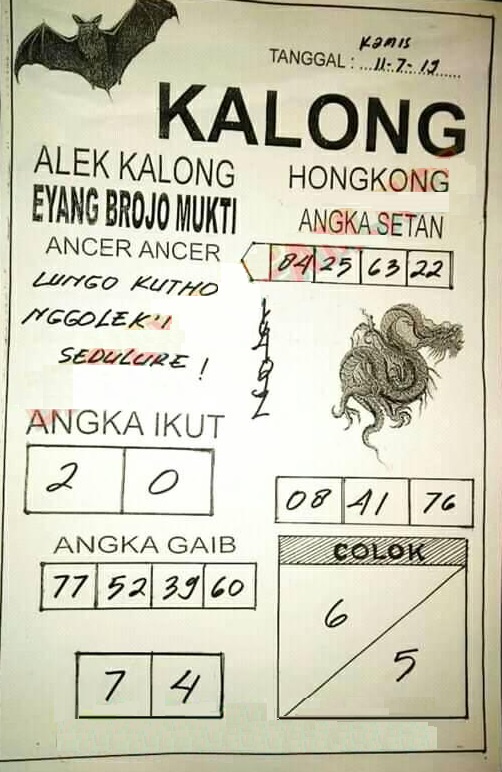 Kamis
TANGGAL : ... 11-7-19
KALONG
ALEK KALONG
EYANG BROJO MUKTI
ANCER ANCER
LUNGO KUTHO
NGGOLEK'I
SEDULURE !
HONGKONG
ANGKA SETAN
84 25 63 22
ANGKA IKUT
2 0
08 41 76
ANGKA GAIB
77 52 39 60
COLOK
6
5
7 4